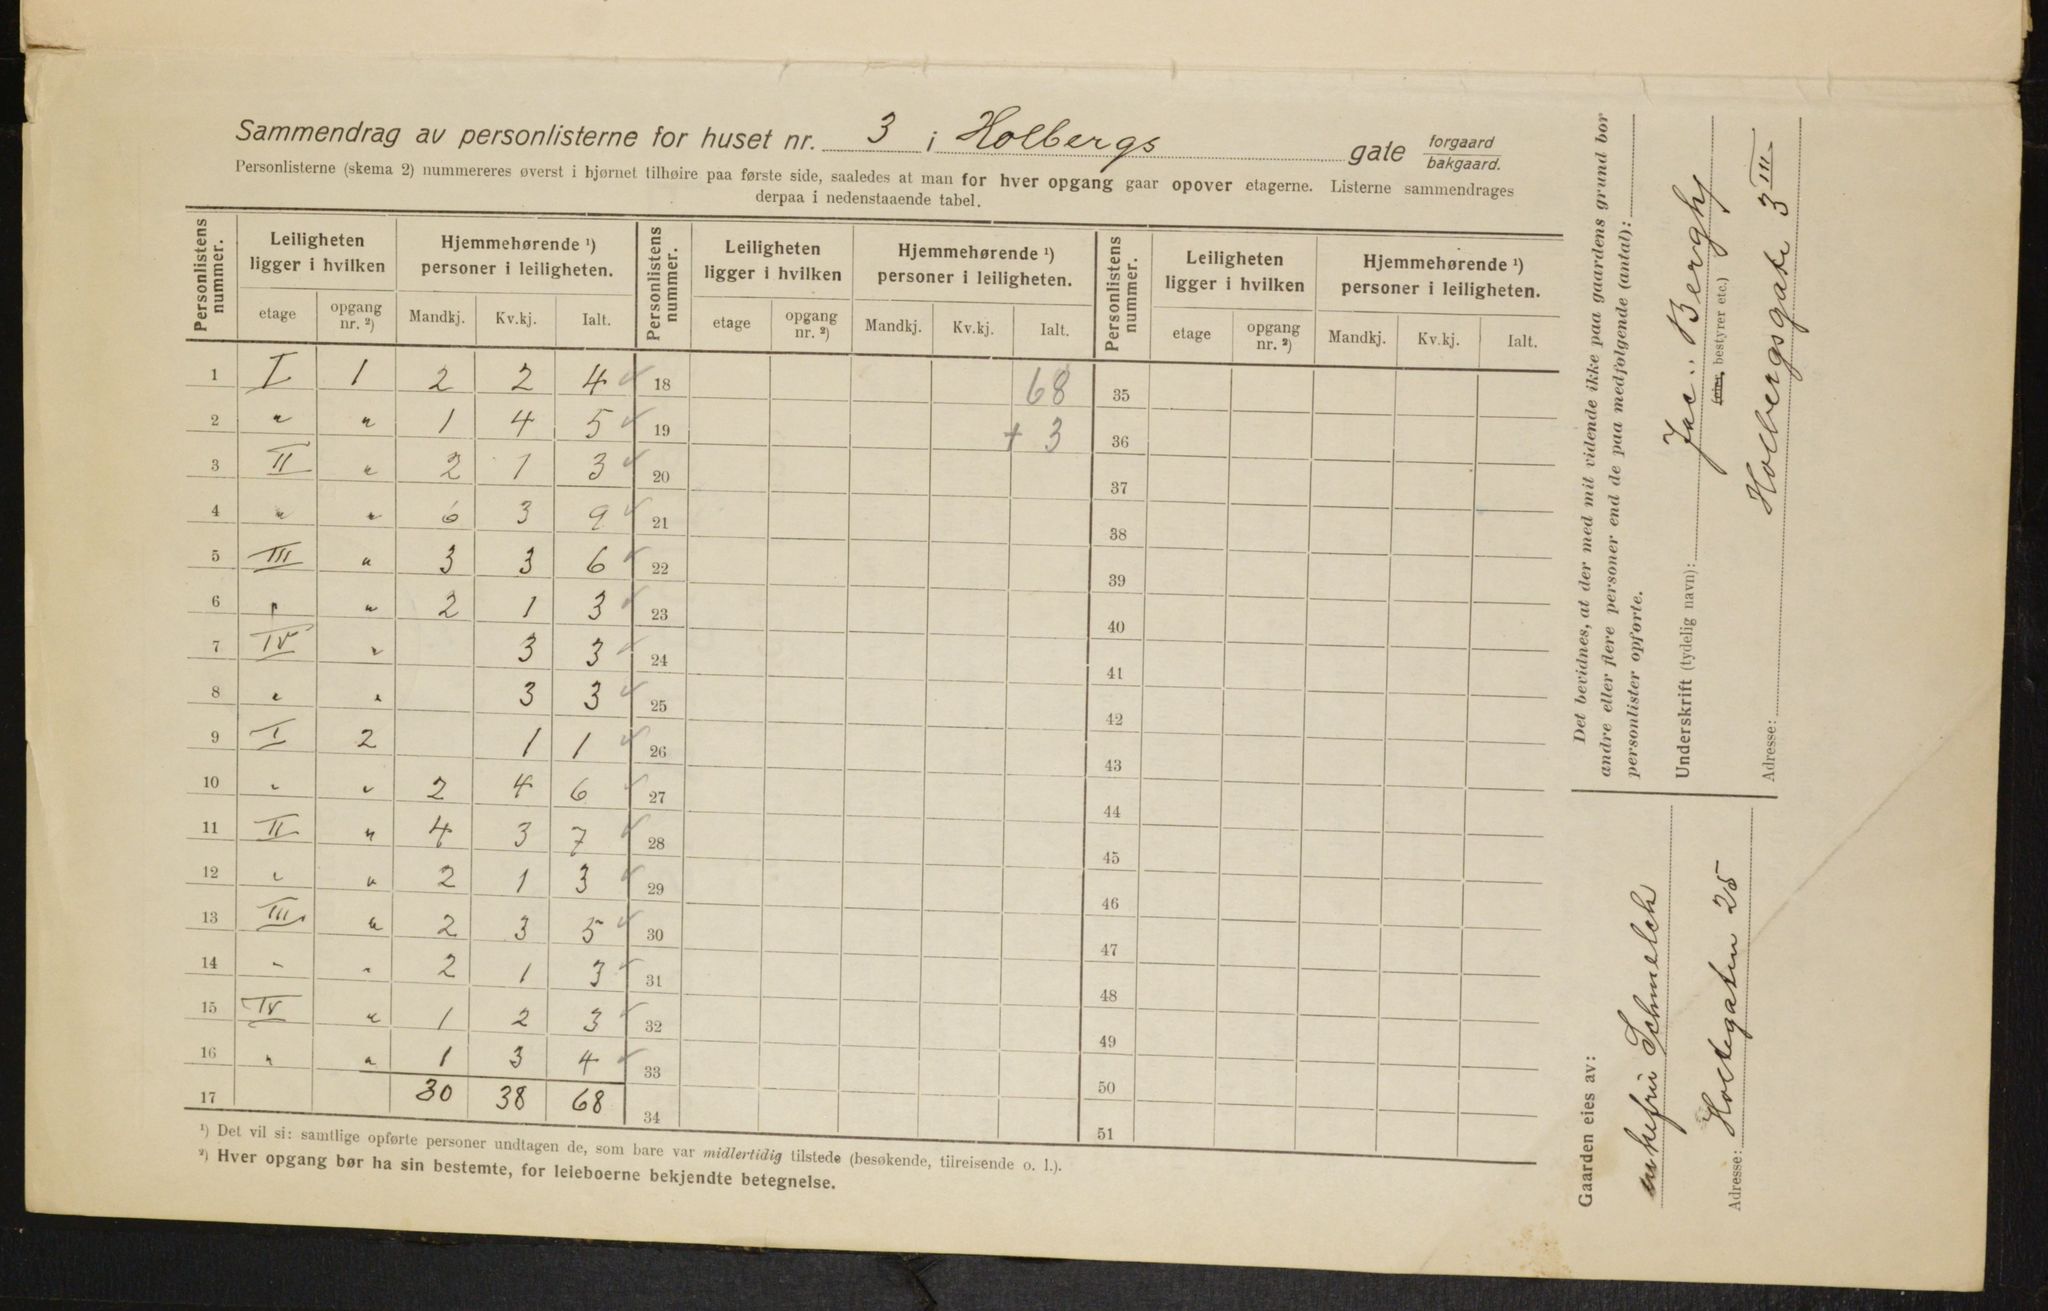 Sammendrag av personlisterne for huset nr. 3 i Holbergs gate forgaard bakgaard.
Personlisterne (skema 2) nummereres øverst i hjørnet tilhøire paa første side, saaledes at man for hver opgang gaar opover etagerne. Listerne sammendrages
derpaa i nedenstaaende tabel.
Personlistens nummer. Leiligheten ligger i hvilken Hjemmehørende ¹) personer i leiligheten. Personlistens nummer. Leiligheten ligger i hvilken Hjemmehørende ¹) personer i leiligheten. Personlistens nummer. Leiligheten ligger i hvilken Hjemmehørende ¹) personer i leiligheten.
etage opgang nr. ²) Mandkj. Kv.kj. Ialt. etage opgang nr. ²) Mandkj. Kv.kj. Ialt. etage opgang nr. ²) Mandkj. Kv.kj. Ialt.
1 I 1 2 2 4 ✓ 18 68 35
2 " " 1 4 5 ✓ 19 + 3 36
3 II " 2 1 3 ✓ 20 37
4 " " 6 3 9 ✓ 21 38
5 III " 3 3 6 ✓ 22 39
6 " " 2 1 3 ✓ 23 40
7 IV " 3 3 ✓ 24 41
8 " " 3 3 ✓ 25 42
9 I 2 1 1 ✓ 26 43
10 " " 2 4 6 ✓ 27 44
11 II " 4 3 7 ✓ 28 45
12 " " 2 1 3 ✓ 29 46
13 III " 2 3 5 ✓ 30 47
14 " " 2 1 3 ✓ 31 48
15 IV " 1 2 3 ✓ 32 49
16 " " 1 3 4 ✓ 33 50
17 30 38 68 34 51
¹) Det vil si: samtlige opførte personer undtagen de, som bare var midlertidig tilstede (besøkende, tilreisende o. l.).
²) Hver opgang bør ha sin bestemte, for leieboerne bekjendte betegnelse.
Det bevidnes, at der med mit vidende ikke paa gaardens grund bor
andre eller flere personer end de paa medfølgende (antal):
personlister opførte.
Underskrift (tydelig navn): Jac: Berghy
(eier, bestyrer etc.)
Adresse: Holbergsgate 3 III
Gaarden eies av:
enkefru Schmelck
Adresse: Holtegaten 25